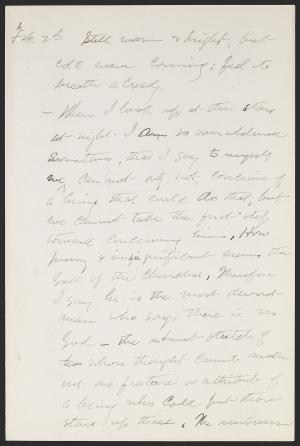 Feb. 2d Still warm & bright, but
cold wave coming; feel its
breath already.
— When I look up at the stars
at night I am so overwhelmed
sometimes, that I say to myself
we can not only not conceive of
a being that could do that, but
we cannot take the first step
toward conceiving him. How
puny & insignificant seems the
God of the Churches. Therefore
I say he is the most devout
man who says there is no
God — the utmost stretch of
whose thought cannot make
out one feature or attribute of
a being who could put those
stars up there. The universe